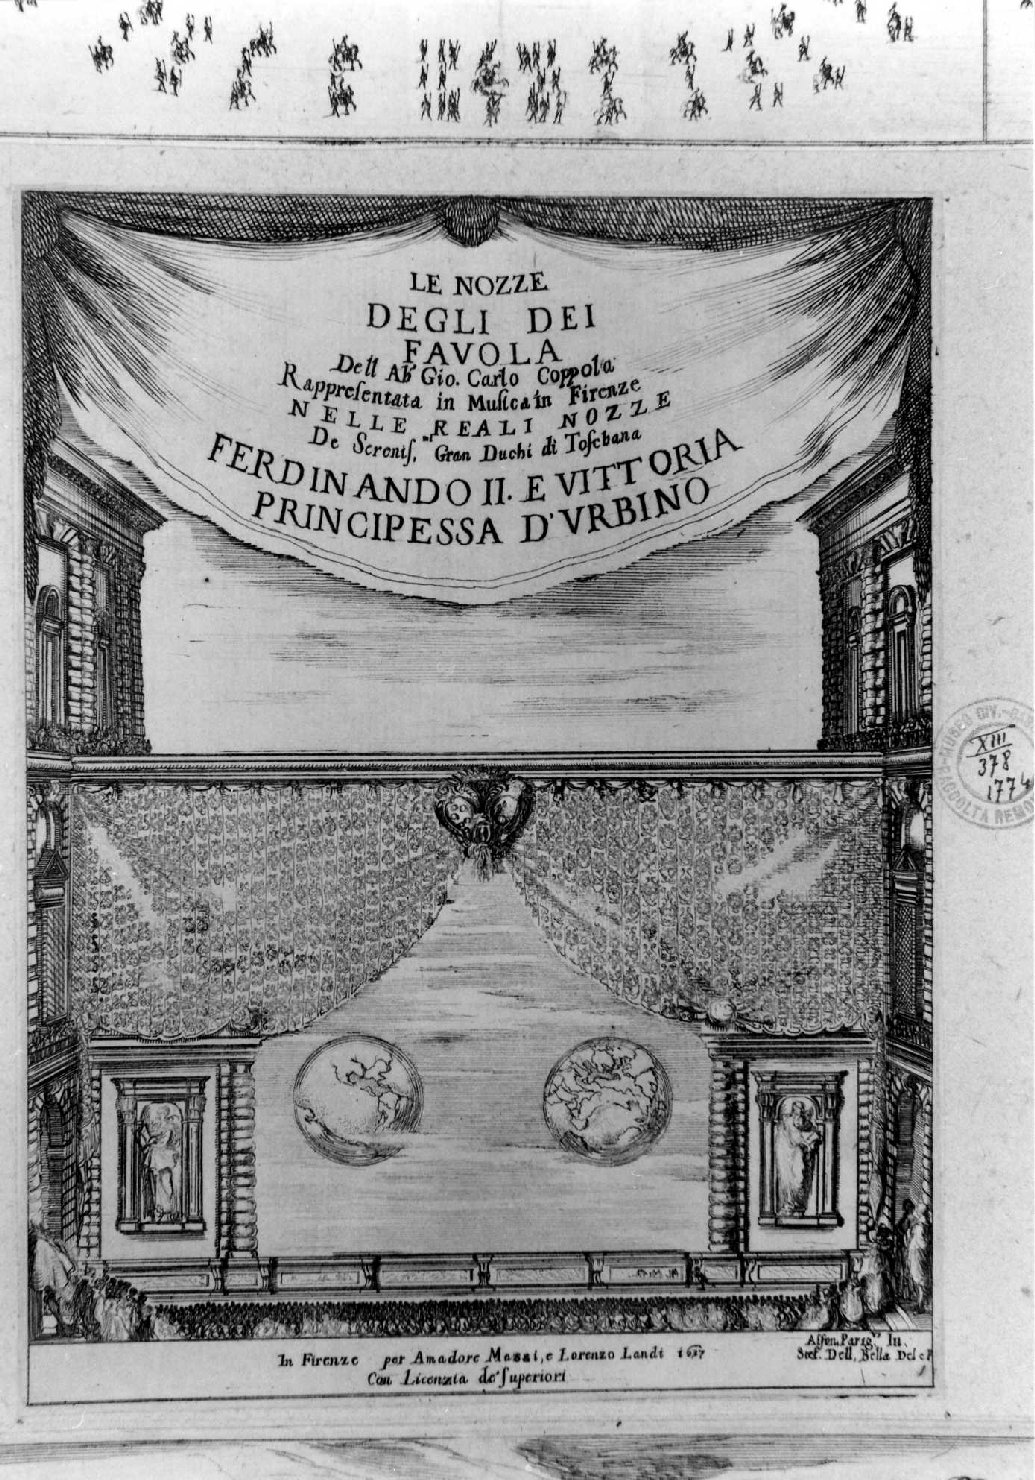 LE NOZZE
DEGLI DEI
FAVOLA
Dell Ab' Gio. Carlo Coppola
Rappresentata in Musica in Firenze
NELLE REALI NOZZE
De Serenis.mi Gran Duchi di Toschana
FERDINANDO II. E VITTORIA
PRINCIPESSA D'VRBINO
XIII
378
1774
In Firenze per Amadore Massi, e Lorenzo Landi 1637
Con Licenzia de' Superiori
Alfon. Parig.ii In.
Stef. Dell. Bella Del e F